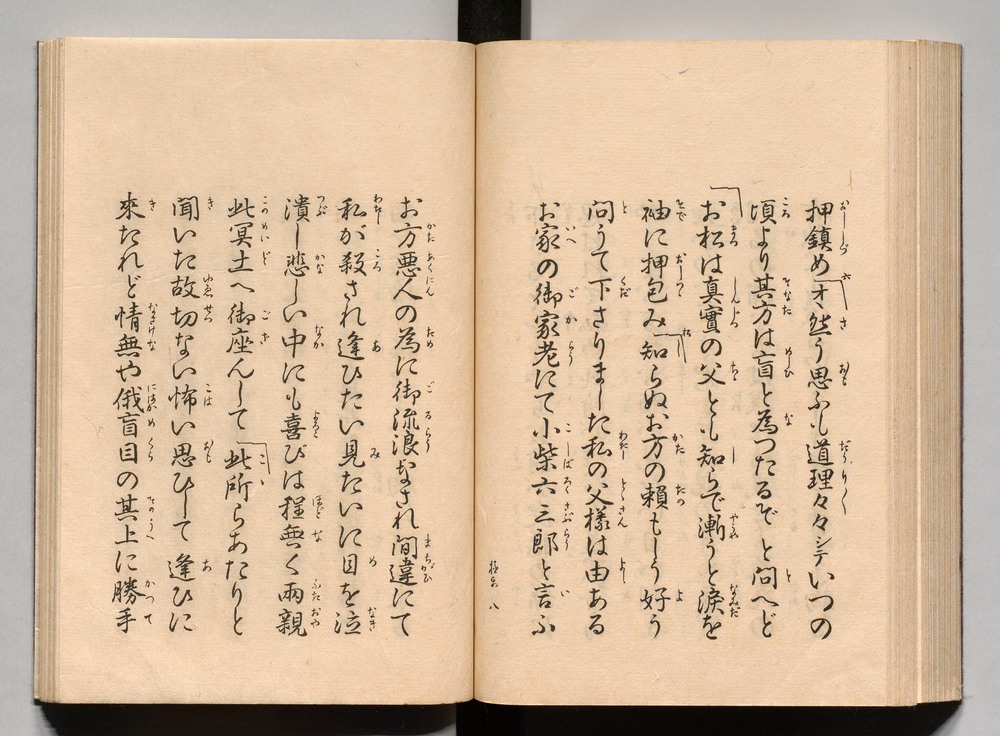 押鎮め「オヽ然う思ふも道理々々シテいつの
頃より其方は盲と為つたるぞと問へど
お松は真實の父とも知らで漸うと涙を
袖に押包み「知らぬお方の頼もしう好う
問うて下さりました私の父様は由ある
お家の御家老にて小柴六三郎と言ふ
八
お方悪人の為に御流浪なされ間違にて
私が殺され逢ひたい見たいに目を泣
潰し悲しい中にも喜びは程無く兩親
此冥土へ御座んして「此所らあたりと
聞いた故切ない怖い思ひして逢ひに
來たれど情無や俄盲目の其上に勝手